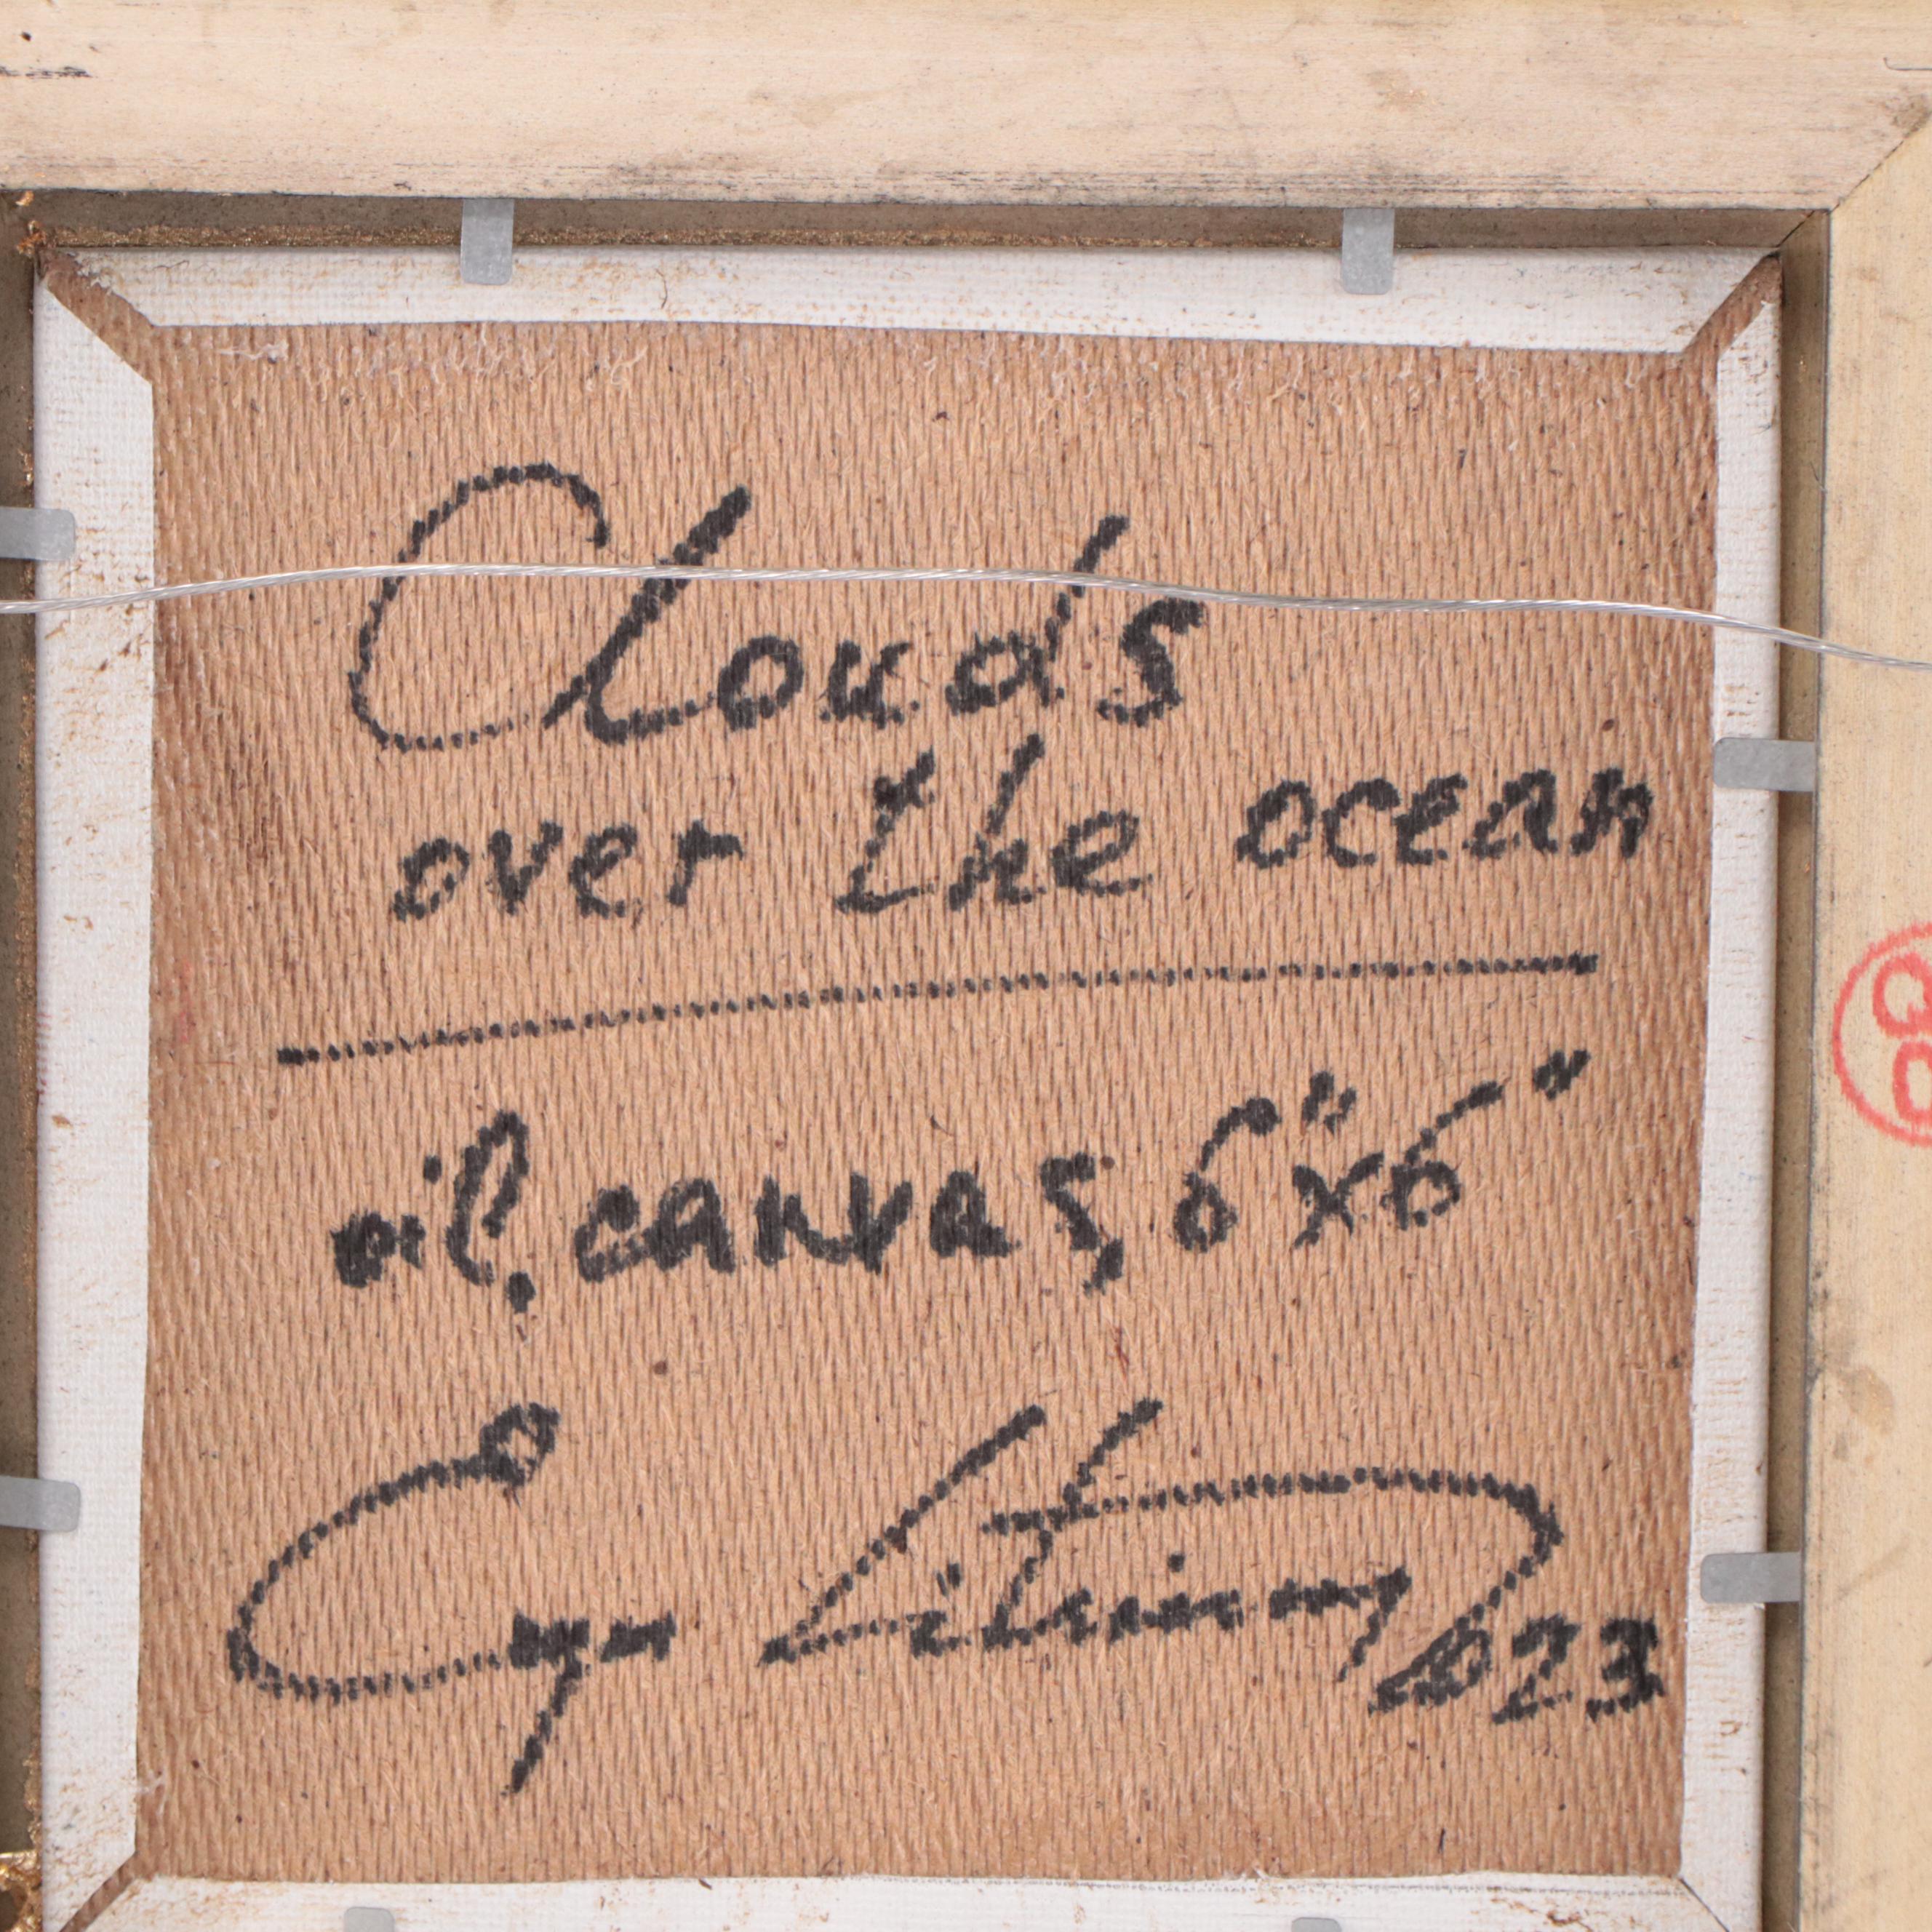 Clouds
over the ocean
oil, canvas, 6"x6"
2023